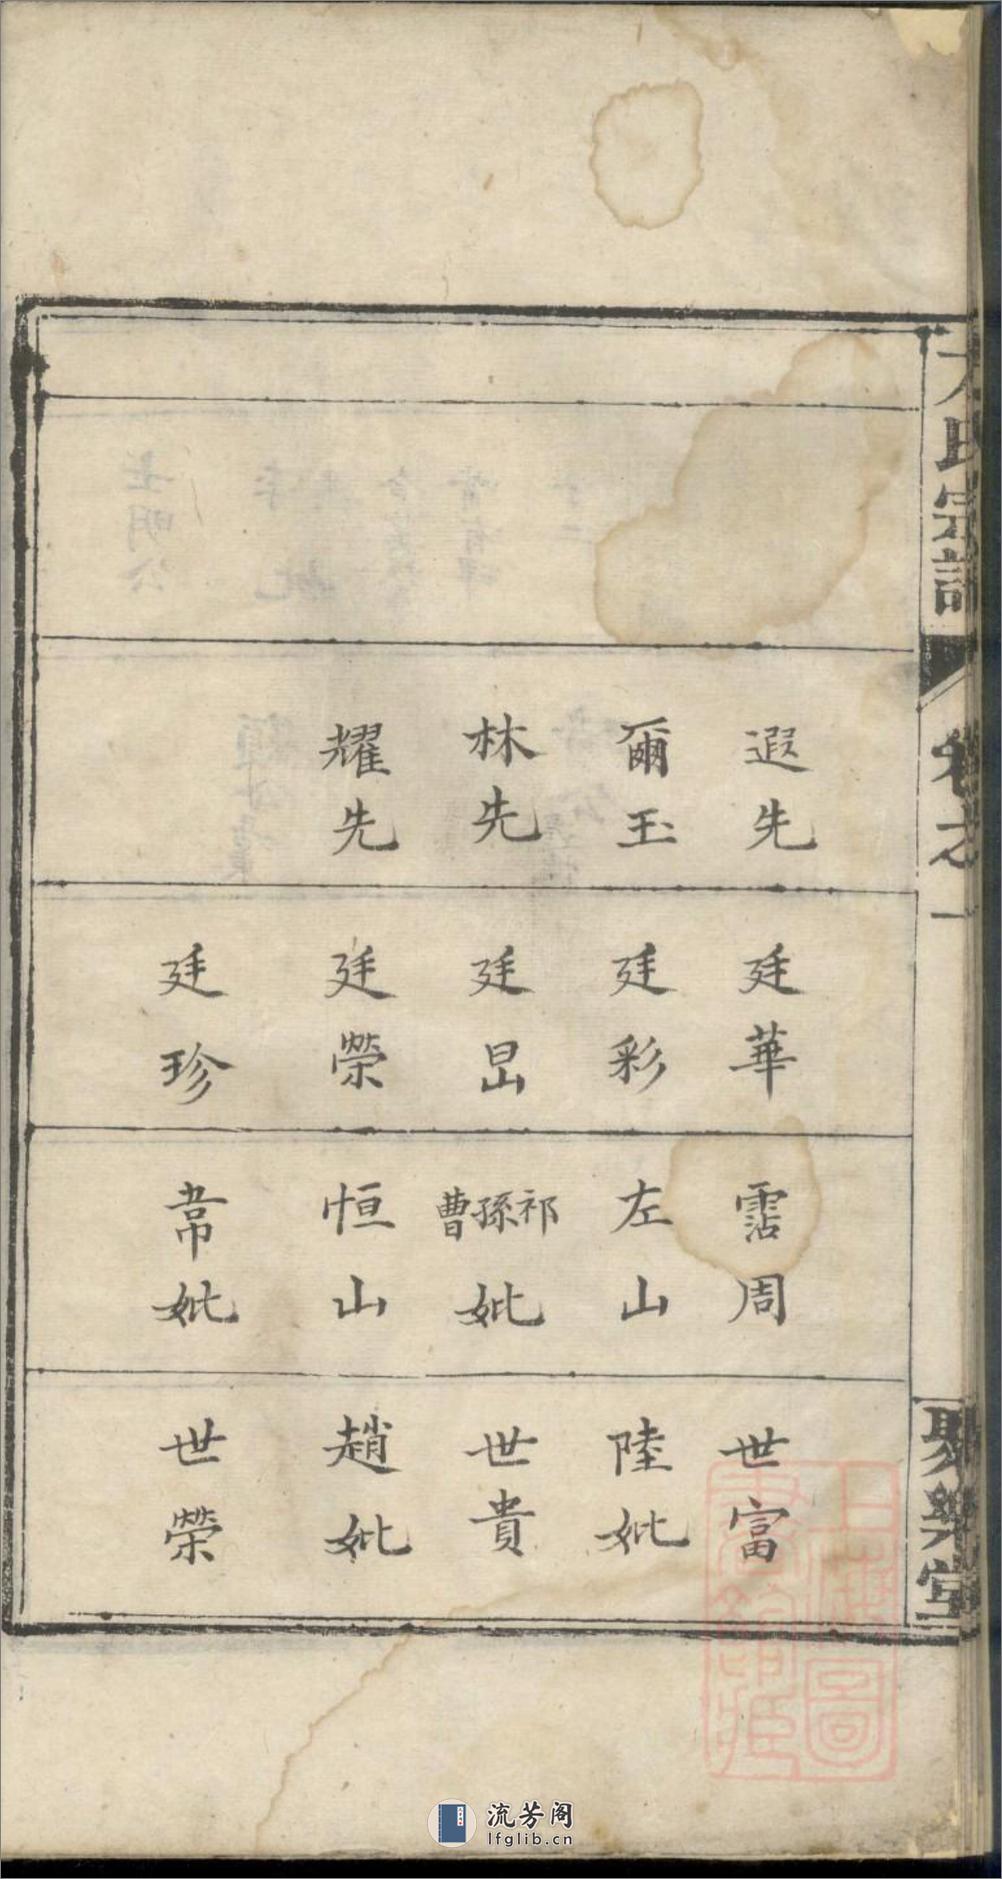 氏宗譜
卷之一
遐先
爾玉
林先
耀先
廷華
廷彩
廷旵
廷榮
廷珍
霑周
左山
祁孫曹妣
恒山
韋妣
世富
陸妣
世貴
趙妣
世榮
上海圖書館藏
流芳阁
lfglib.cn